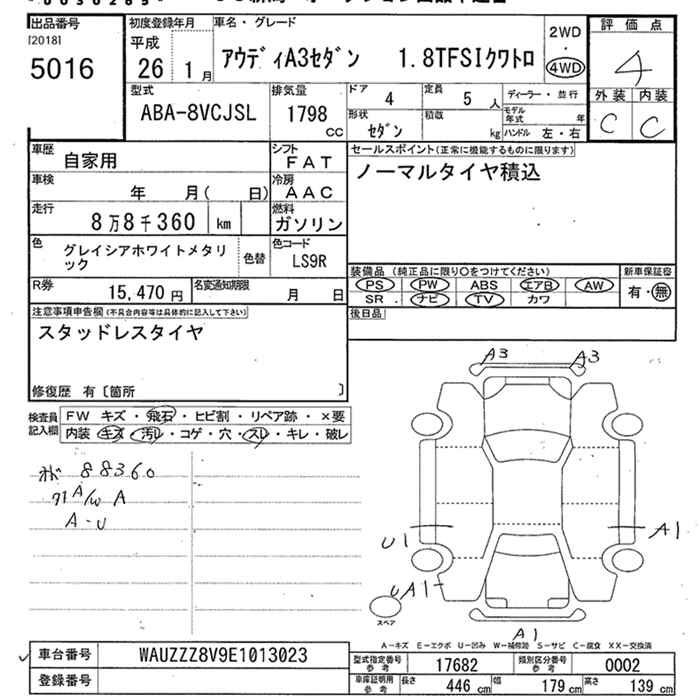 出品番号
[2018]
5016
初度登録年月
平成
26 1月
車名・グレード
アウディA3セダン 1.8TFSIクワトロ
2WD
・
4WD
評価点
4
外装 内装
C C
型式
ABA-8VCJSL
排気量
1798
CC
ドア
4
定員
5 人
形状
セダン
積載
kg
ディーラー・並行
モデル年式 年
ハンドル 左・右
車歴
自家用
シフト
FAT
車検
年 月( 日)
冷房
AAC
走行
8万8千360 km
燃料
ガソリン
色
グレイシアホワイトメタリック
色替
色コード
LS9R
R券
15,470 円
名変通知期限
月 日
セールスポイント(正常に機能するものに限ります)
ノーマルタイヤ積込
装備品 (純正品に限り○をつけてください)
PS PW ABS エアB AW
SR ナビ TV カワ
新車保証書
有・無
後日品
注意事項申告欄(不具合内容等は具体的に記入して下さい)
スタッドレスタイヤ
修復歴 有〔箇所 〕
検査員記入欄
FW キズ・飛石・ヒビ割・リペア跡・×要
内装 キズ・汚レ・コゲ・穴・スレ・キレ・破レ
88360
A/W A
A-U
A3 A3
U1 A1
UA1
A1
スペア
A-キズ E-エクボ U-凹み W-補修跡 S-サビ C-腐食 XX-交換済
車台番号
WAUZZZ8V9E1013023
登録番号
型式指定番号参考
17682
類別区分番号参考
0002
車庫証明用参考
長さ 446 cm
幅 179 cm
高さ 139 cm